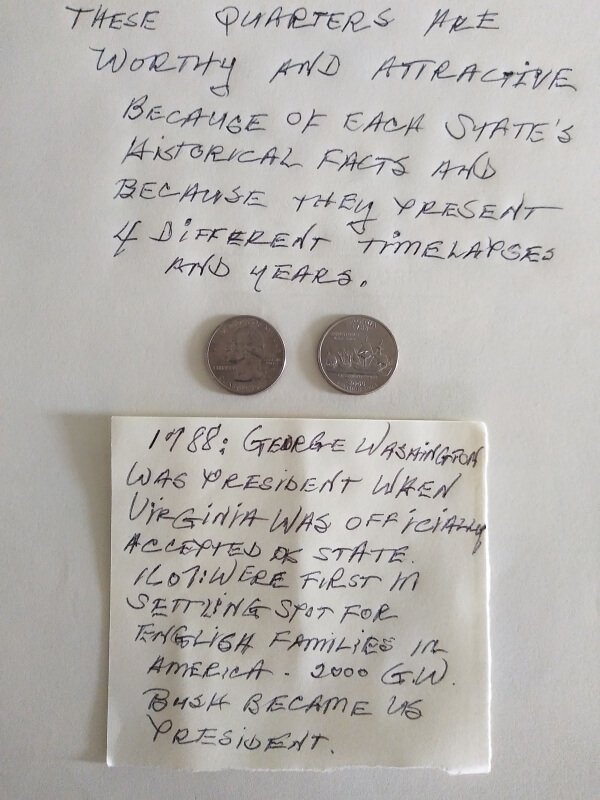 THESE QUARTERS ARE
WORTHY AND ATTRACTIVE
BECAUSE OF EACH STATE'S
HISTORICAL FACTS AND
BECAUSE THEY PRESENT
4 DIFFERENT TIMELAPSES
AND YEARS.
1788: GEORGE WASHINGTON
WAS PRESIDENT WHEN
VIRGINIA WAS OFFICIALLY
ACCEPTED AS STATE.
1607: WERE FIRST IN
SETTLING SPOT FOR
ENGLISH FAMILIES IN
AMERICA - 2000 G.W.
BUSH BECAME US
PRESIDENT.